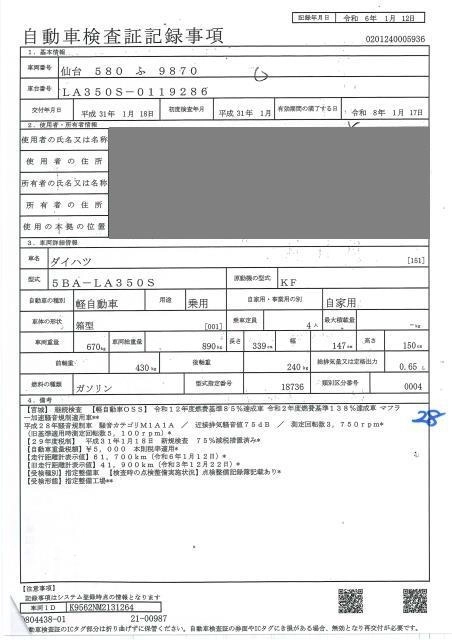 記録年月日 令和 6年 1月 12日
自動車検査証記録事項
0201240005936
1. 基本情報
車両番号 仙台 580 ふ 9870
車台番号 LA350S-0119286
交付年月日 平成 31年 1月 18日 初度検査年月 平成 31年 1月 有効期間の満了する日 令和 8年 1月 17日
2. 使用者・所有者情報
使用者の氏名又は名称
使用者の住所
所有者の氏名又は名称
所有者の住所
使用の本拠の位置
3. 車両詳細情報
車名 ダイハツ [151]
型式 5BA-LA350S 原動機の型式 KF
自動車の種別 軽自動車 用途 乗用 自家用・事業用の別 自家用
車体の形状 箱型 [001] 乗車定員 4人 最大積載量 -kg
車両重量 670kg 車両総重量 890kg 長さ 339cm 幅 147cm 高さ 150cm
前軸重 430kg 後軸重 240kg 総排気量又は定格出力 0.65 L
燃料の種類 ガソリン 型式指定番号 18736 類別区分番号 0004
4. 備考
【宮城】 継続検査 【軽自動車OSS】 令和12年度燃費基準85%達成車 令和2年度燃費基準138%達成車 マフラ
ー加速騒音規制適用車**
平成28年騒音規制車 騒音カテゴリM1A1A / 近接排気騒音値75dB / 測定回転数3,750rpm*
(旧基準適用時測定回転数5,100rpm)*
【29年度税制】 平成31年1月18日 新規検査 75%減税措置済み*
【自動車重量税額】 ¥5,000 本則税率適用*
【走行距離計表示値】 61,700km (令和6年1月12日)*
【旧走行距離計表示値】 41,900km (令和3年12月22日)*
【受検種別】 指定整備車 【検査時の点検整備実施状況】 点検整備記録簿記載あり*
【受検形態】 指定整備工場**
28
【注意事項】
記録事項はシステム登録時点の情報となります
車両ID K9562NM2131264
0804438-01 21-00987
自動車検査証のICタグ部分は折り曲げずに保管ください。自動車検査証の券面やICタグにき損がある場合、無効となり再交付が必要です。